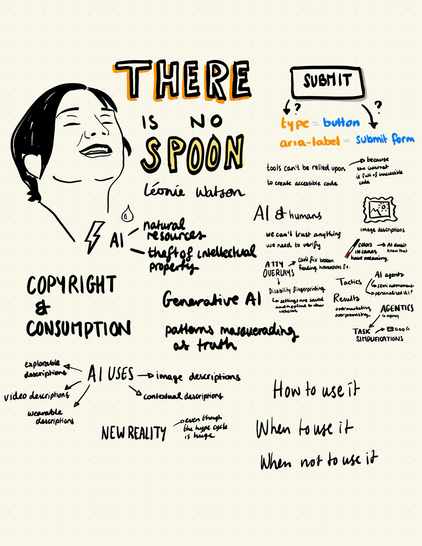 THERE
IS NO
SPOON
Léonie Watson
SUBMIT
?
?
type = button
aria-label = submit form
tools can't be relied upon
to create accessible code
because
the internet
is full of inaccessible
code
AI
natural
resources
theft of intellectual
property
COPYRIGHT
&
CONSUMPTION
Generative AI
patterns masquerading
as truth
AI & humans
we can't trust anything
we need to verify
image descriptions
A11Y
OVERLAYS
Disability fingerprinting
Tactics
Results
overmarketing
overpromising
AI agents
AGENTICS
TASK
SIMPLIFICATIONS
AI USES
explorable
descriptions
video descriptions
wearable
descriptions
image descriptions
contextual descriptions
NEW REALITY
even though
the hype cycle
is huge
How to use it
When to use it
When not to use it